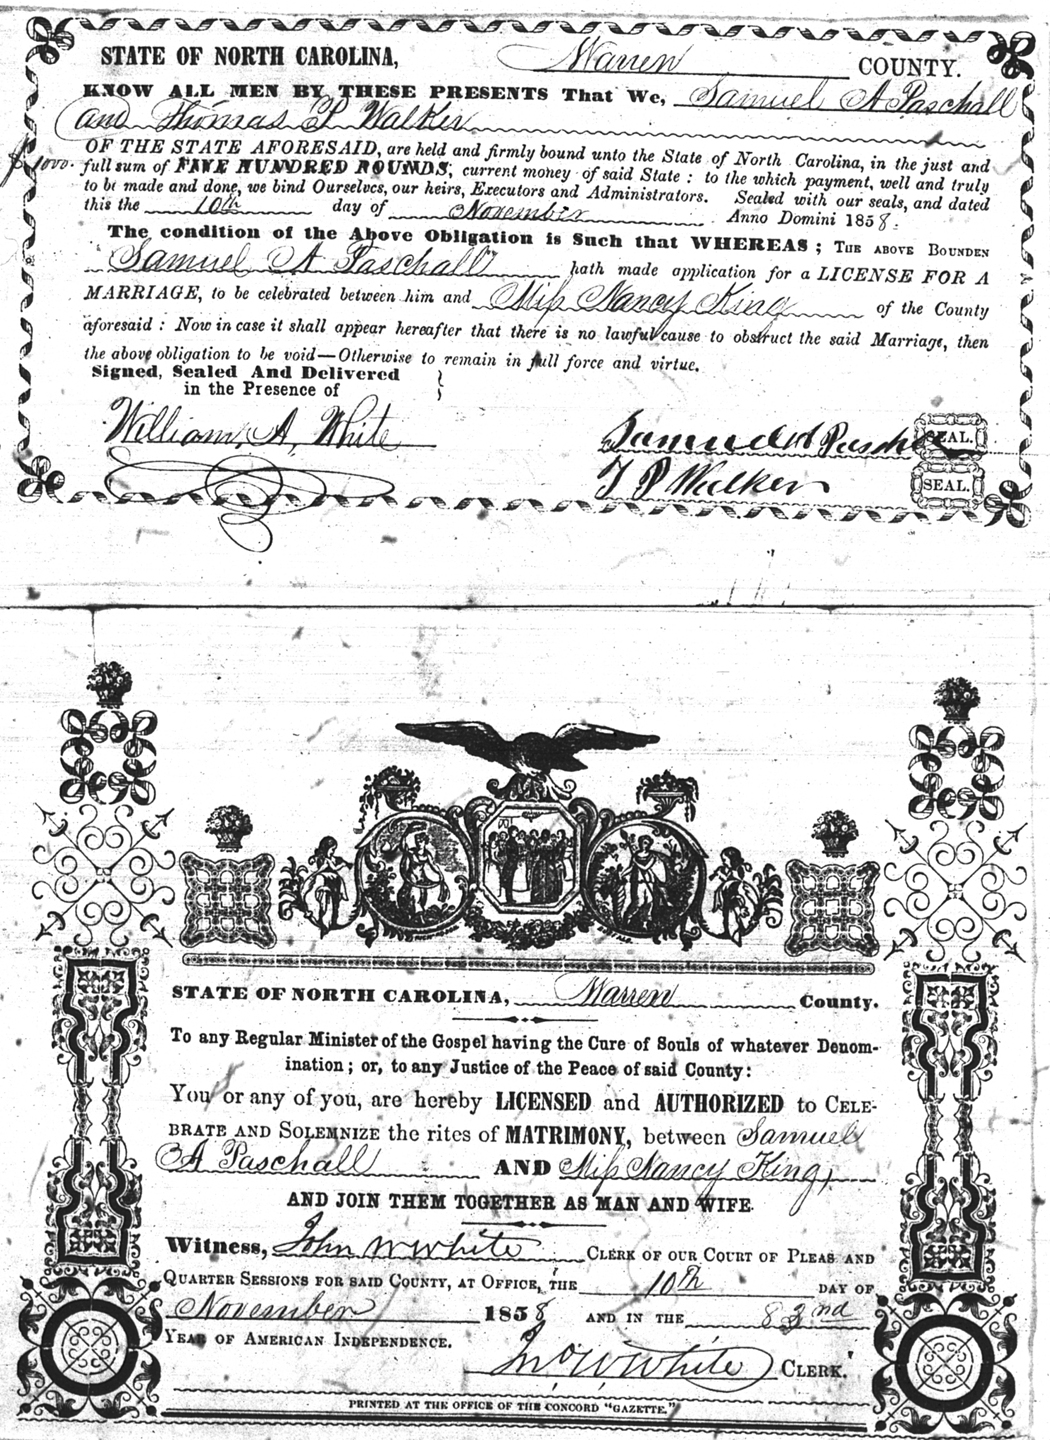 STATE OF NORTH CAROLINA, Warren COUNTY.
KNOW ALL MEN BY THESE PRESENTS That We, Samuel A Paschall
and Thomas P Walker
OF THE STATE AFORESAID, are held and firmly bound unto the State of North Carolina, in the just and
$1000. full sum of FIVE HUNDRED POUNDS; current money of said State: to the which payment, well and truly
to be made and done, we bind Ourselves, our heirs, Executors and Administrators. Sealed with our seals, and dated
this the 10th day of November Anno Domini 1858.
The condition of the Above Obligation is Such that WHEREAS; THE ABOVE BOUNDEN
Samuel A Paschall hath made application for a LICENSE FOR A
MARRIAGE, to be celebrated between him and Miss Nancy King of the County
aforesaid: Now in case it shall appear hereafter that there is no lawful cause to obstruct the said Marriage, then
the above obligation to be void—Otherwise to remain in full force and virtue.
Signed, Sealed And Delivered
in the Presence of
William, A, White
Samuel A Paschall SEAL.
T P Walker SEAL.
STATE OF NORTH CAROLINA, Warren County.
To any Regular Minister of the Gospel having the Cure of Souls of whatever Denom-
ination; or, to any Justice of the Peace of said County:
You or any of you, are hereby LICENSED and AUTHORIZED to CELE-
BRATE AND SOLEMNIZE the rites of MATRIMONY, between Samuel
A Paschall AND Miss Nancy King,
AND JOIN THEM TOGETHER AS MAN AND WIFE.
Witness, John W White CLERK OF OUR COURT OF PLEAS AND
QUARTER SESSIONS FOR SAID COUNTY, AT OFFICE, THE 10th DAY OF
November 1858 AND IN THE 83nd
YEAR OF AMERICAN INDEPENDENCE.
Jno W White CLERK.
PRINTED AT THE OFFICE OF THE CONCORD "GAZETTE."